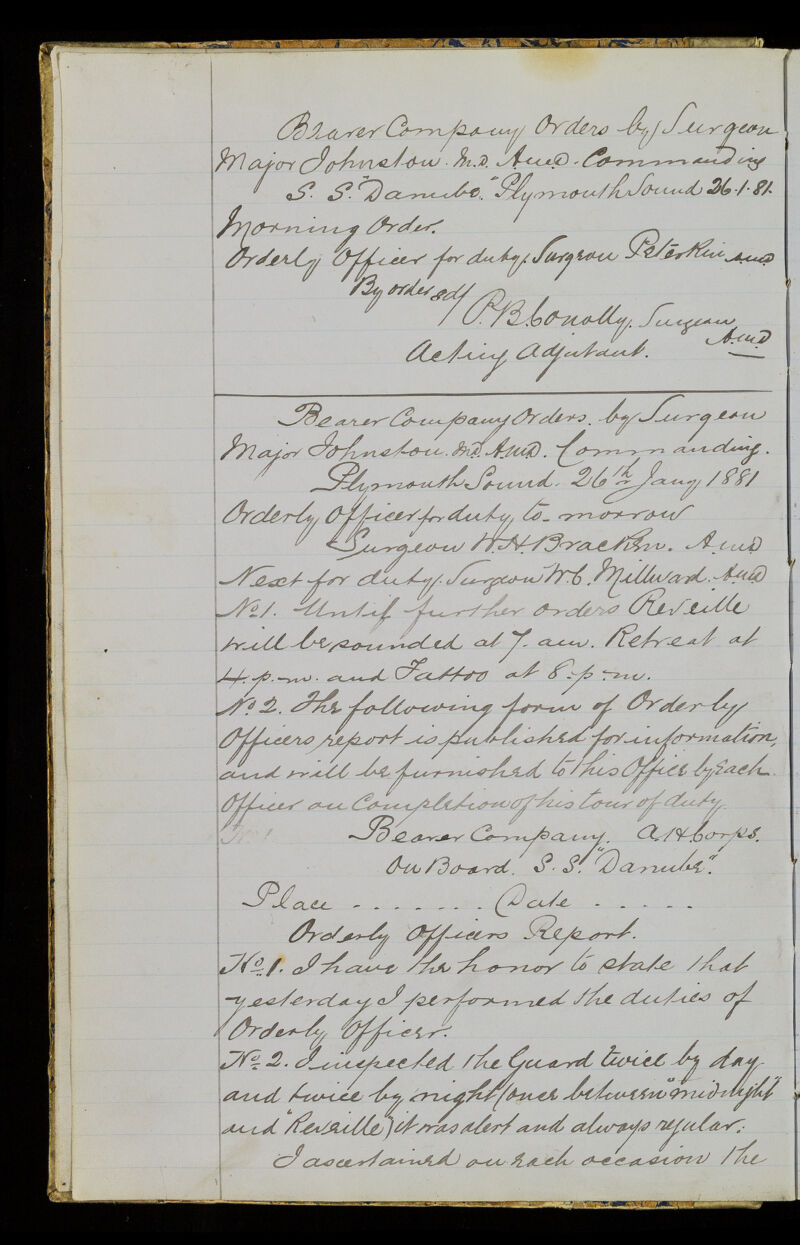 Bearer Company Orders by Surgeon
Major Johnston. M.D. A.M.D. Commanding
S. S. "Danube." Plymouth Sound 26.1.81.
Morning Order.
Orderly Officer for duty. Surgeon Peterkin AMD
By order sd/
P. B. Conolly. Surgeon
A.M.D
Acting Adjutant.
Bearer Company Orders. by Surgeon
Major Johnston. M.D. A.M.D. Commanding.
Plymouth Sound. 26th Jany 1881
Orderly Officer for duty, to-morrow
Surgeon W. H. Bracken. AMD
Next for duty. Surgeon W. C. Millward. AMD
No 1. Until further orders Reveille
will be sounded at 7. am. Retreat at
4. p.-m. and Tattoo at 8.-p-m.
No 2. The following form of Orderly
Officers report is published for information,
and will be furnished to this Office by each
Officer on Completion of his tour of duty.
Bearer Company. A. H Corps.
On Board. S. S. "Danube".
Place - - - - - - - Date - - - - -
Orderly Officers Report.
No 1. I have the honor to state that
yesterday I performed the duties of
Orderly Officer.
No 2. I inspected the Guard twice by day
and twice by night (once between "midnight"
and "Reveille") it was alert and always regular.
I ascertained on each occasion the